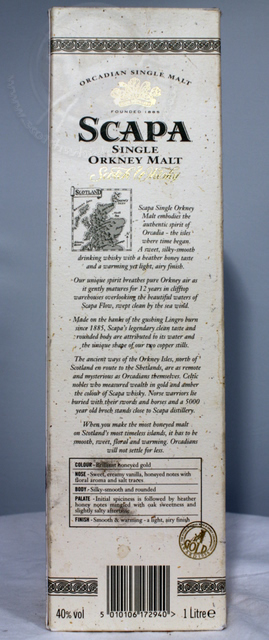 ORCADIAN SINGLE MALT
FOUNDED 1885
SCAPA
SINGLE
ORKNEY MALT
Scotch Whisky
SCOTLAND
Scapa Single Orkney
Malt embodies the
authentic spirit of
Orcadia - the isles
where time began.
A sweet, silky-smooth
drinking whisky with a heather honey taste
and a warming yet light, airy finish.
Our unique spirit breathes pure Orkney air as
it gently matures for 12 years in clifftop
warehouses overlooking the beautiful waters of
Scapa Flow, swept clean by the sea world.
Made on the banks of the gushing Lingro burn
since 1885, Scapa's legendary clean taste and
rounded body are attributed to its water and
the unique shape of our two copper stills.
The ancient ways of the Orkney Isles, north of
Scotland en route to the Shetlands, are as remote
and mysterious as Orcadians themselves. Celtic
nobles who measured wealth in gold and amber
the colour of Scapa whisky. Norse warriors lie
buried with their swords and horses and a 5000
year old broch stands close to Scapa distillery.
When you make the most honeyed malt
on Scotland's most timeless islands, it has to be
smooth, sweet, floral and warming. Orcadians
will not settle for less.
COLOUR - Brilliant honeyed gold
NOSE - Sweet, creamy vanilla, honeyed notes with
floral aroma and salt traces
BODY - Silky-smooth and rounded
PALATE - Initial spiciness is followed by heather
honey notes mingled with oak sweetness and
slightly salty aftertaste
FINISH - Smooth & warming - a light, airy finish
GOLD
40% vol
5 010106 172940 >
1 Litre e